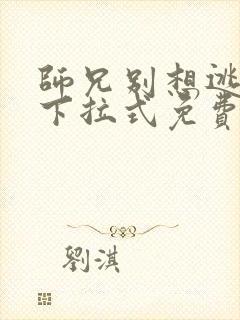 師兄别想逃
下拉式免費
劉淇